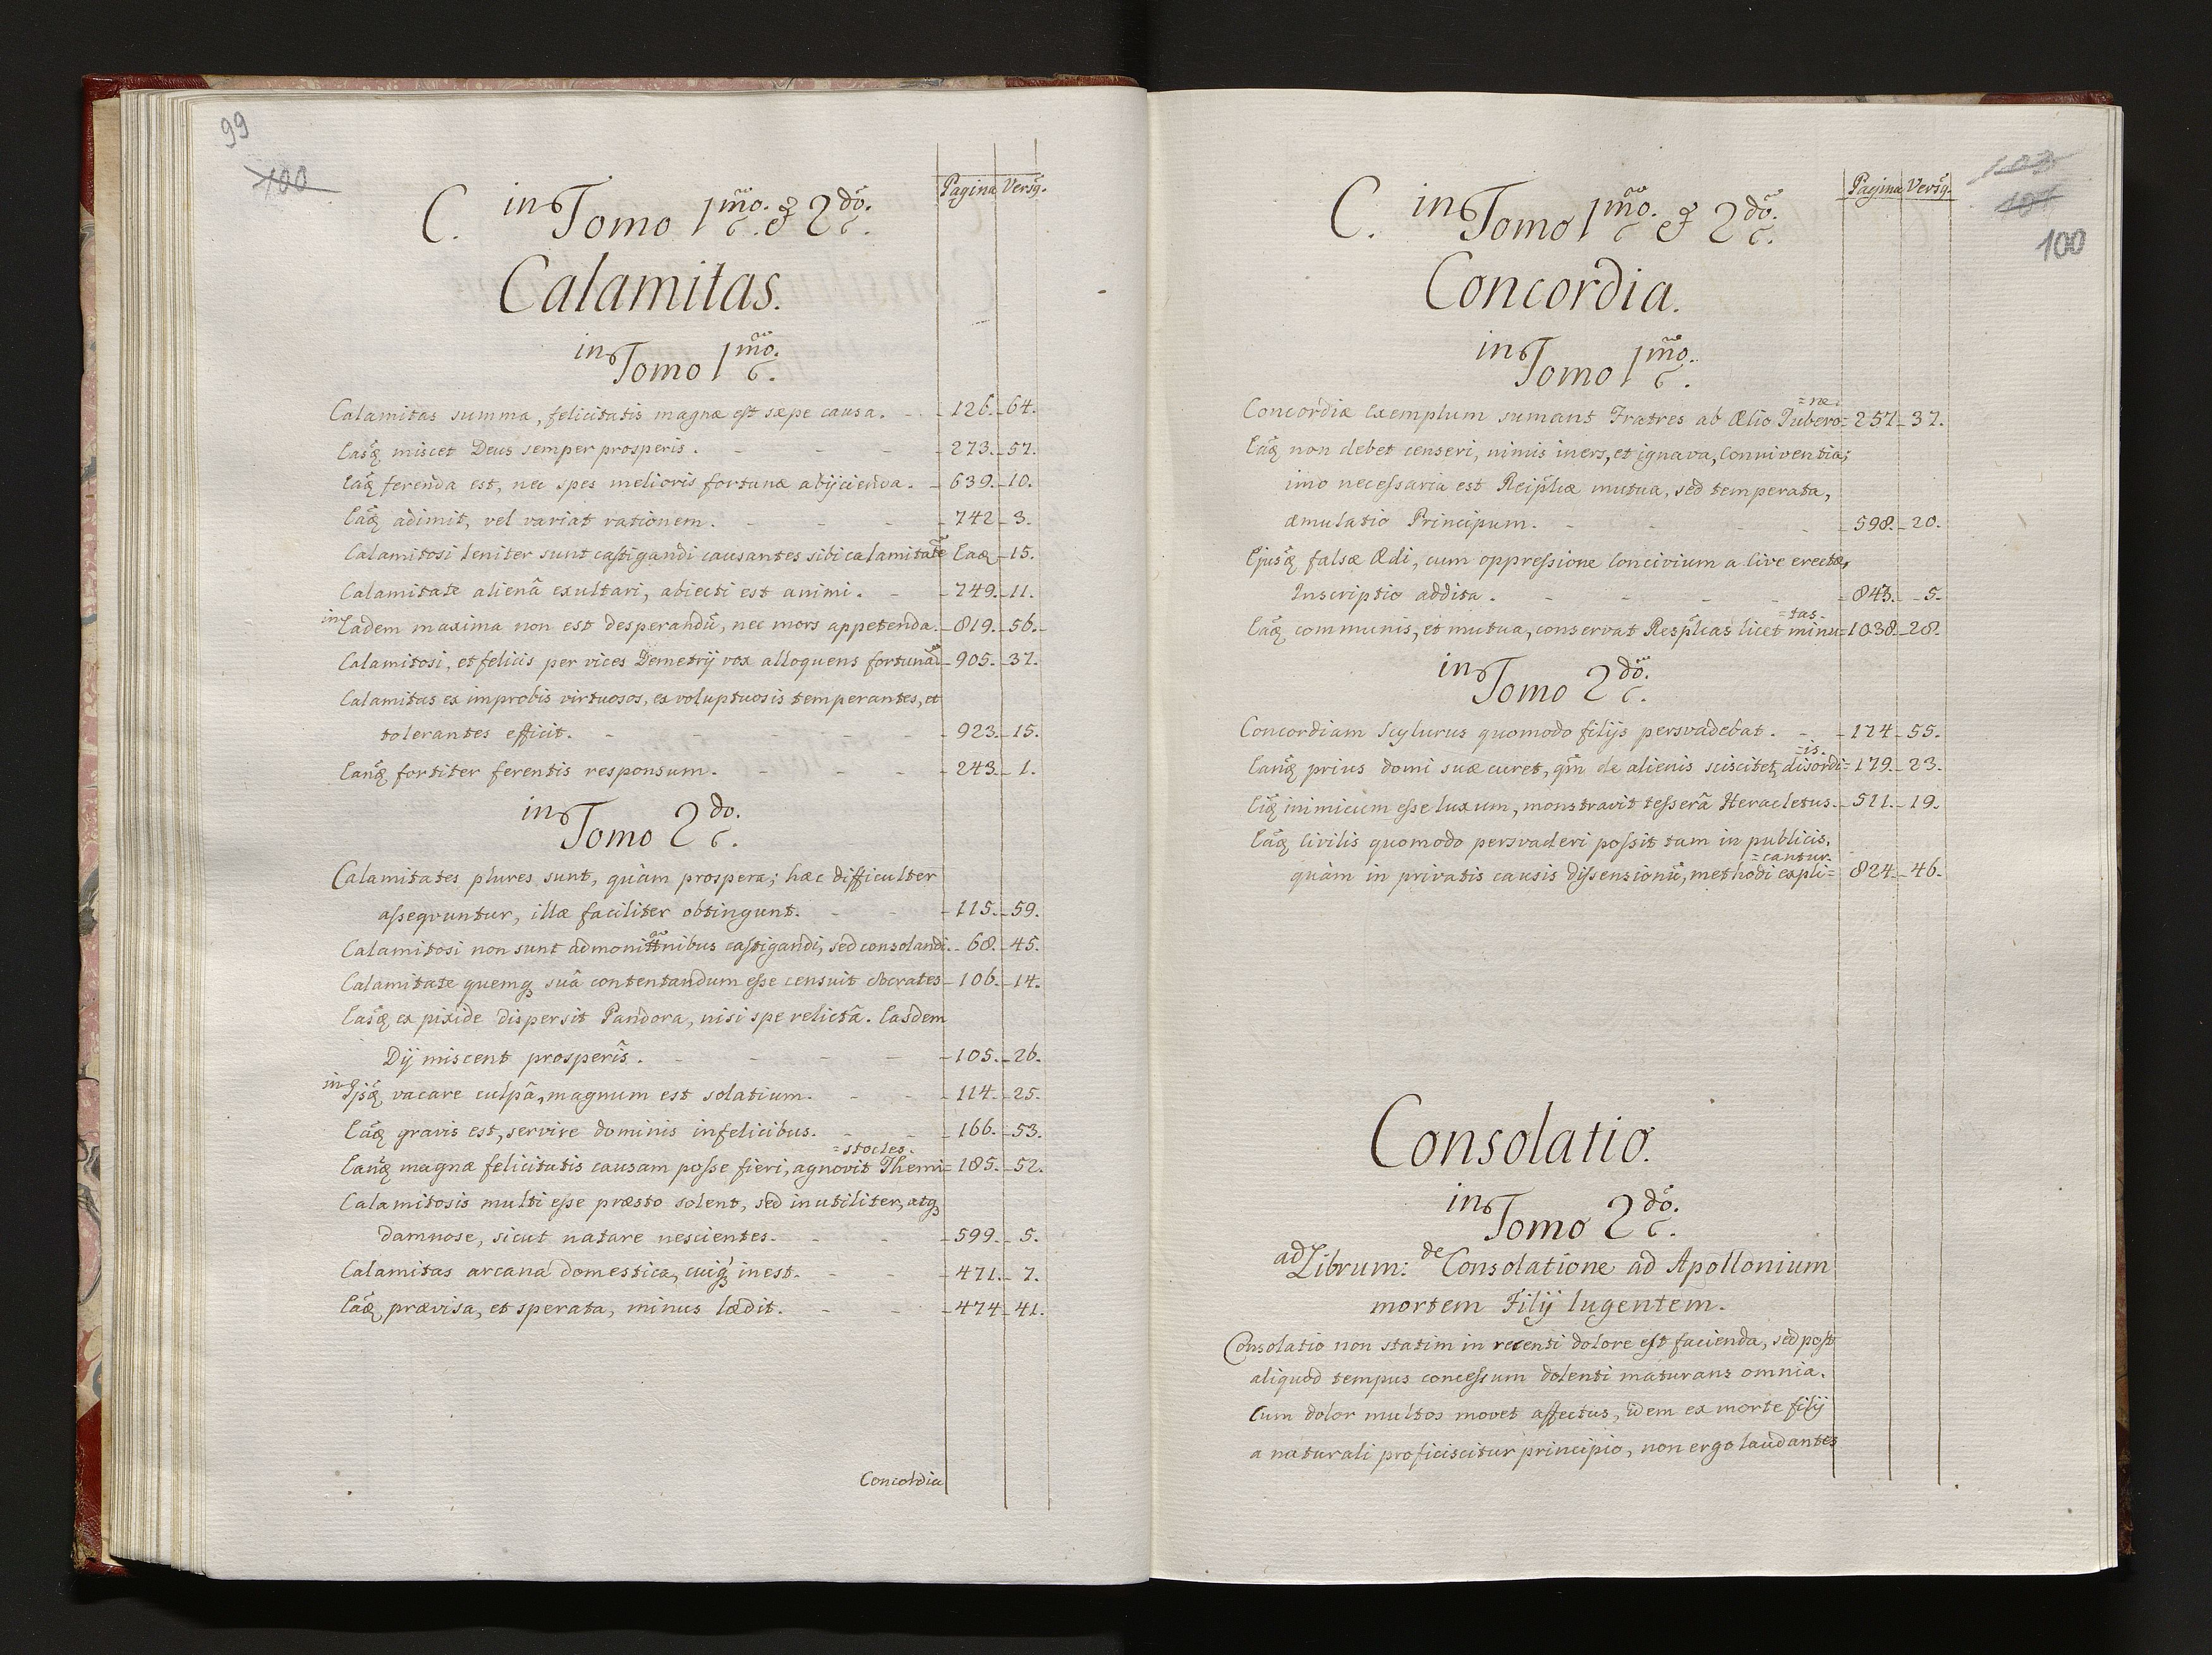 99
100
Pagina Versq.
C. in Tomo 1mo. & 2do.
Calamitas.
in Tomo 1mo.
Calamitas summa, felicitatis magnæ est sæpe causa. - - 126. - 64.
Easq miscet Deus semper prosperis. - - - - 273. - 57.
Eaq ferenda est, nec spes melioris fortunæ abijcienda. - 639. - 10.
Eaq adimit, vel variat rationem. - - - - 742 - 3.
Calamitosi leniter sunt castigandi causantes sibi calamitate Eaq - 15.
Calamitate alienâ exultari, abiecti est animi. - - 749. - 11.
in Eadem maxima non est desperandū, nec mors appetenda. - 819. - 56. -
Calamitosi, et felicis per vices Demetrij vox alloquens fortunā - 905. - 37.
Calamitas ex improbis virtuosos, ex voluptuosis temperantes, et
tolerantes efficit. - - - - - - 923. - 15.
Eanq fortiter ferentis responsum. - - - - 243. - 1.
in Tomo 2do.
Calamitates plures sunt, quàm prospera; hæc difficulter
assequuntur, illæ faciliter obtingunt. - - - 115. - 59.
Calamitosi non sunt admonitionibus castigandi, sed consolandi. - 68. - 45.
Calamitate quemq suâ contentandum esse censuit Socrates - 106. - 14.
Easq ex pixide dispersit Pandora, nisi spe relictâ. Easdem
Dij miscent prosperis. - - - - - 105. - 26.
in Ijsq vacare culpâ, magnum est solatium. - - - 114. - 25.
Eaq gravis est, servire dominis infelicibus. - - - 166. - 53.
=stocles.
Eanq magnæ felicitatis causam posse fieri, agnovit Themi= 185. - 52.
Calamitosis multi esse præsto solent, sed inutiliter, atq
damnose, sicut natare nescientes. - - - 599. - 5.
Calamitas arcana domestica, cuiq inest. - - - 471. - 7.
Eaq prævisa, et sperata, minus lædit. - - - 474 - 41.
Concordia
103
101
100
Pagina Versq.
C. in Tomo 1mo. & 2do.
Concordia.
in Tomo 1mo.
=ne.
Concordiæ exemplum sumant Fratres ab Ælio Tubero= 257 - 37.
Eaq non debet censeri, nimis iners, et ignava, Conniventia;
imo necessaria est Reiplicæ mutua, sed temperata,
æmulatio Principum. - - - - 598. - 20.
Ejusq falsæ Ædi, cum oppressione Concivium a Cive erectæ,
Inscriptio addita. - - - - - 843. - 5.
=tas.
Eaq communis, et mutua, conservat Resplicas licet minu= 1038. - 28.
in Tomo 2do.
Concordiam Scylurus quomodo filijs persvadebat. - - 174 - 55.
=is.
Eanq prius domi suæ curet, qm de alienis sciscitet, disordi= 179. - 23.
Eiq inimicum esse luxum, monstravit tesserâ Heracletus. - 511. - 19.
Eaq Civilis quomodo persvaderi possit tam in publicis,
=cantur.
quàm in privatis causis dissensionū, methodi expli= 824. - 46.
Consolatio.
in Tomo 2do.
ad Librum: de Consolatione ad Apollonium
mortem Filij lugentem.
Consolatio non statim in recenti dolore est facienda, sed post
aliquod tempus concessum dolenti maturans omnia.
Cum dolor multos movet affectus, idem ex morte filij
a naturali proficiscitur principio, non ergo laudantes